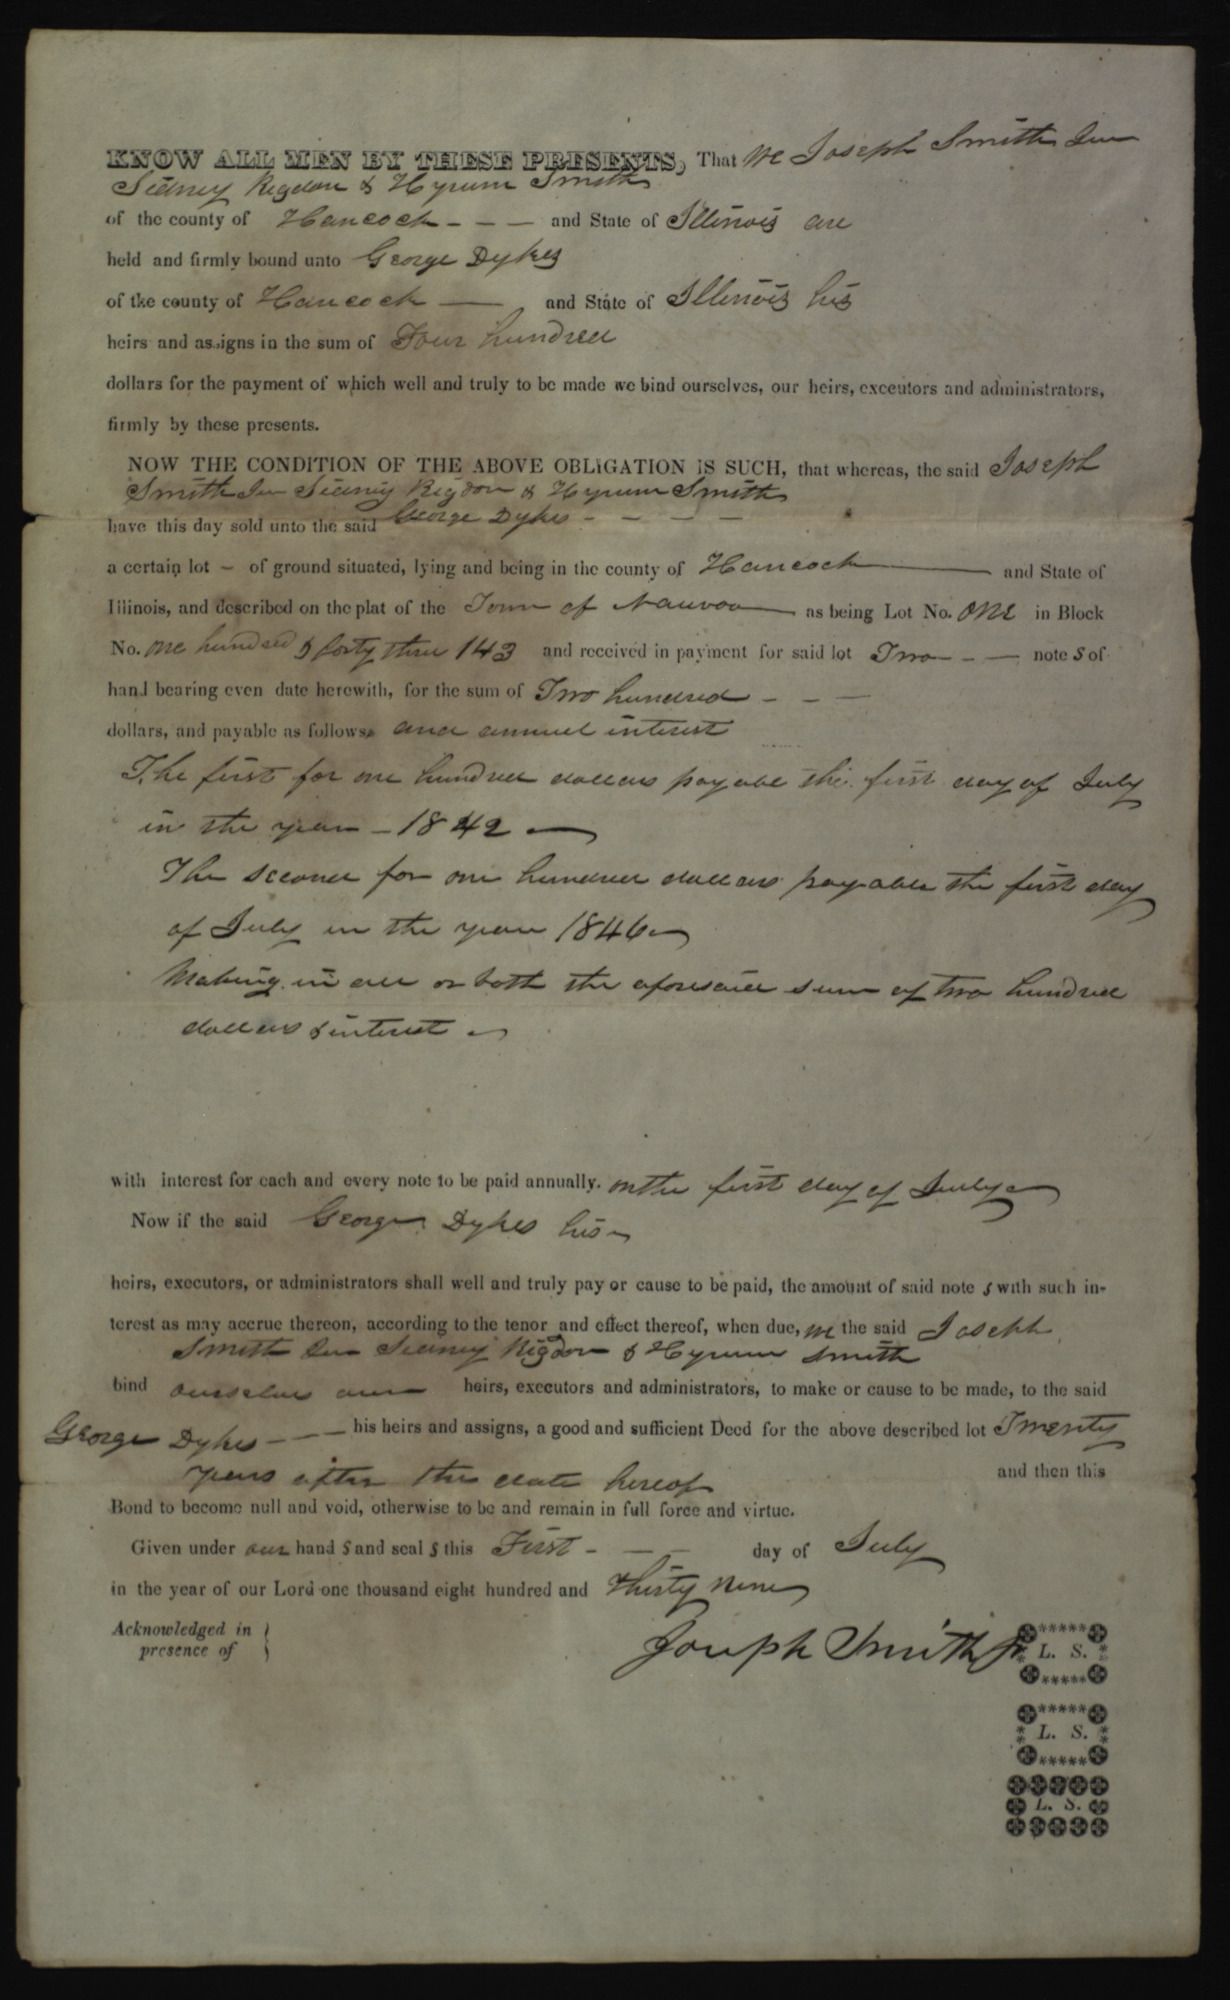 KNOW ALL MEN BY THESE PRESENTS, That we Joseph Smith Jun
Sidney Rigdon & Hyrum Smith
of the county of Hancock - - - and State of Illinois are
held and firmly bound unto George Dykes
of the county of Hancock — and State of Illinois his
heirs and assigns in the sum of Four hundred
dollars for the payment of which well and truly to be made we bind ourselves, our heirs, executors and administrators,
firmly by these presents.
NOW THE CONDITION OF THE ABOVE OBLIGATION IS SUCH, that whereas, the said Joseph
Smith Jun Sidney Rigdon & Hyrum Smith
have this day sold unto the said George Dykes - - - -
a certain lot - of ground situated, lying and being in the county of Hancock — and State of
Illinois, and described on the plat of the Town of Nauvoo — as being Lot No. one in Block
No. one hundred & forty three 143 and received in payment for said lot Two - - — note s of
hand bearing even date herewith, for the sum of Two hundred - - —
dollars, and payable as follows, and annuel interest
The first for one hundred dollars payabl the first day of July
in the year - 1842 —
The second for one hundred dollars payable the first day
of July in the year 1846
Making in all or both the aforesaid sum of two hundred
dollars & interest
with interest for each and every note to be paid annually. on the first day of July
Now if the said George Dykes his
heirs, executors, or administrators shall well and truly pay or cause to be paid, the amount of said note s with such in-
terest as may accrue thereon, according to the tenor and effect thereof, when due, we the said Joseph
Smith Jun Sidney Rigdon & Hyrum Smith
bind ourselves our heirs, executors and administrators, to make or cause to be made, to the said
George Dykes - - — his heirs and assigns, a good and sufficient Deed for the above described lot Twenty
years after the date hereof and then this
Bond to become null and void, otherwise to be and remain in full force and virtue.
Given under our hand s and seal s this First - - — day of July
in the year of our Lord one thousand eight hundred and thirty nine
Acknowledged in
presence of
Joseph Smith Jr
L. S.
L. S.
L. S.